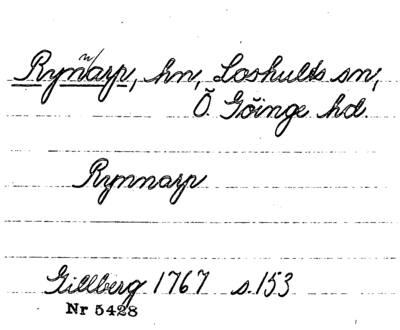 Ryñarp, hn, Loshults sn,
Ö. Göinge hd.
Rynnarp
Gillberg 1767 s. 153
Nr 5428